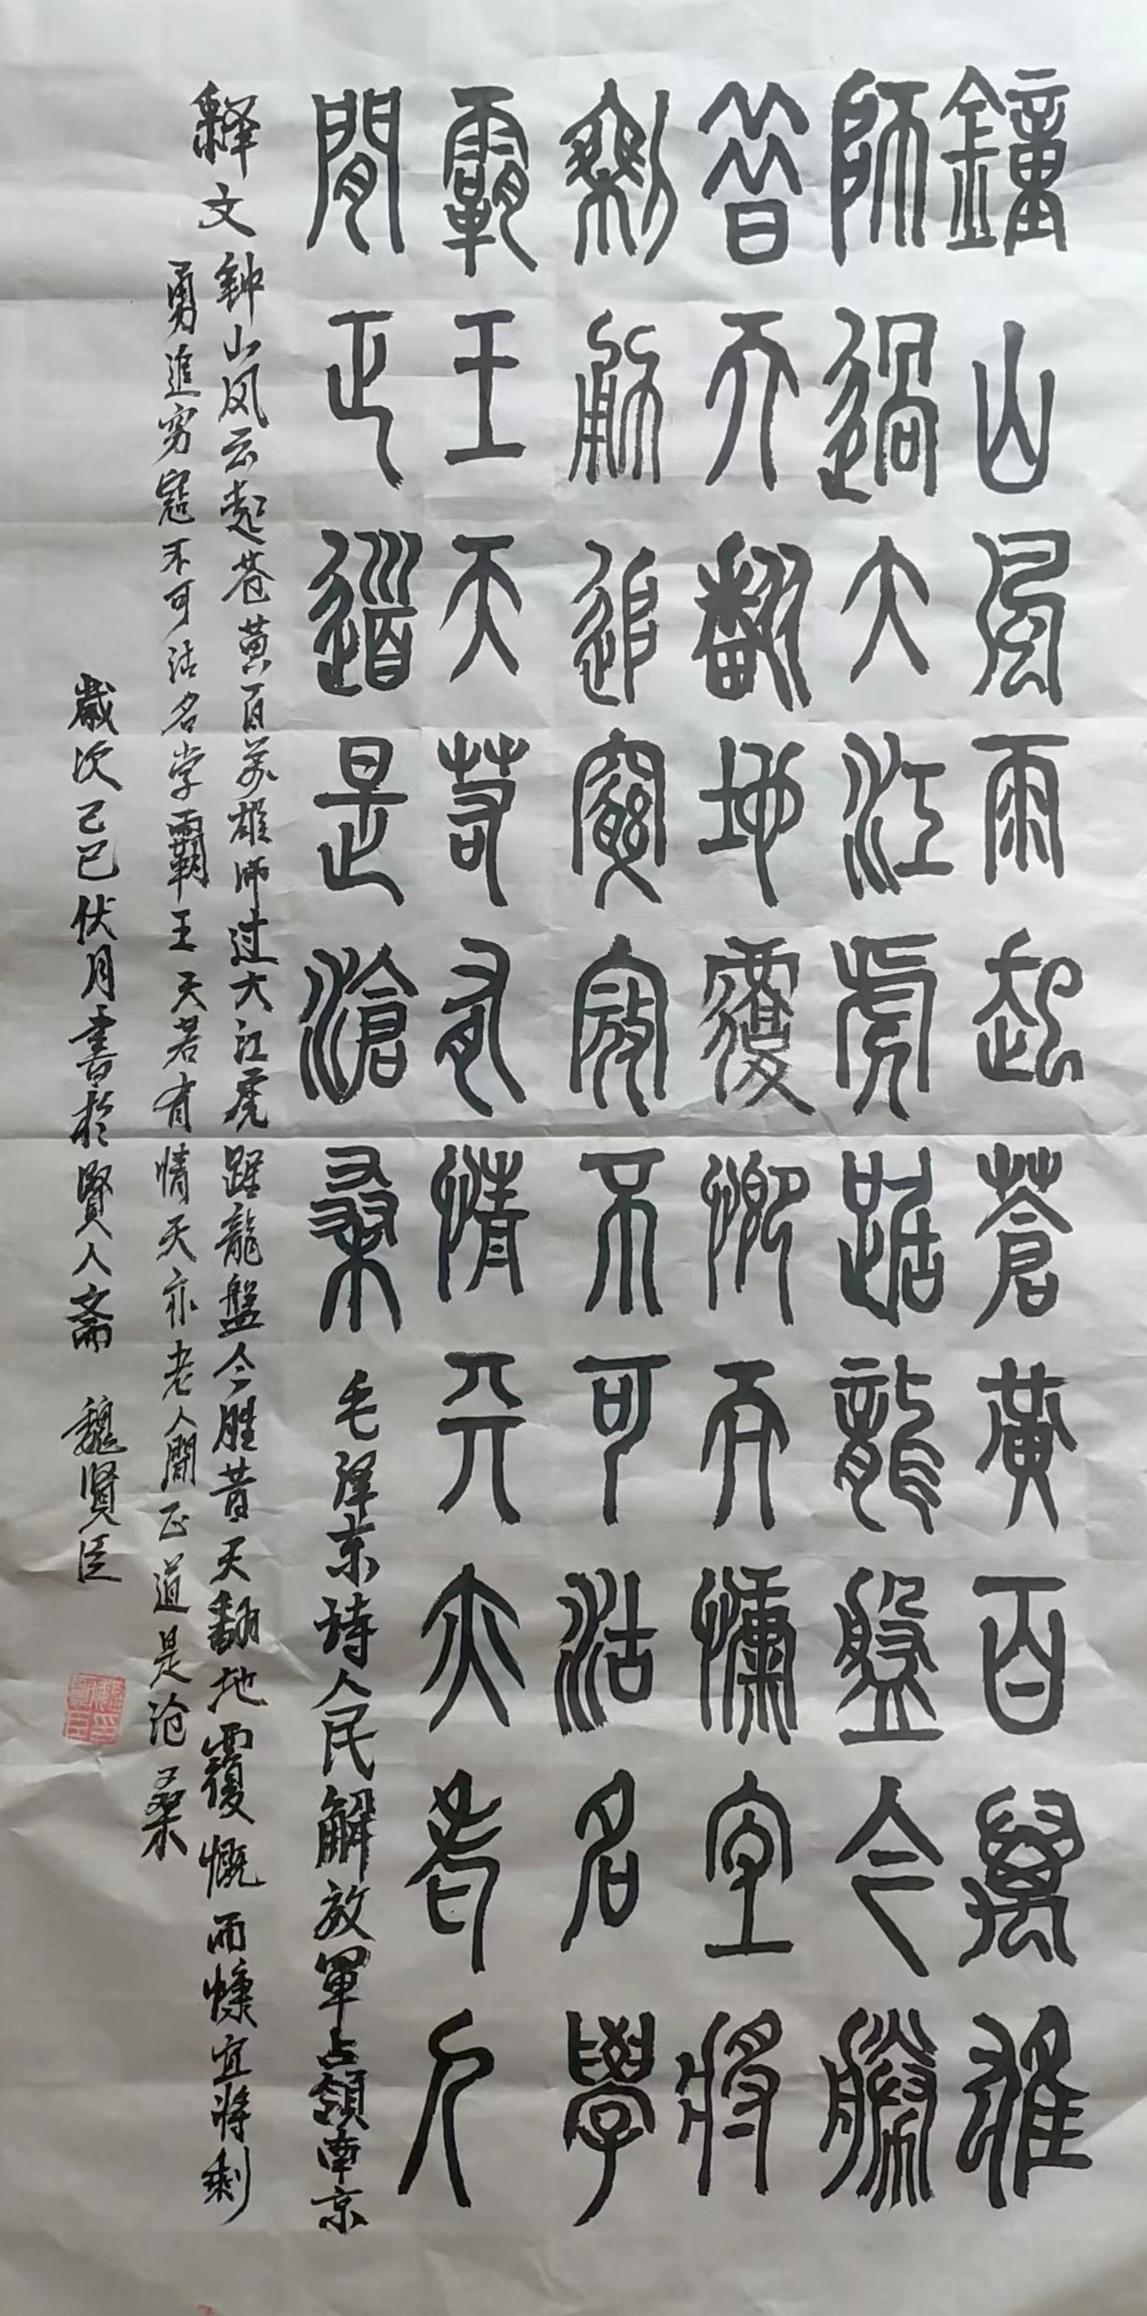 鐘山風雨起蒼黄百萬雄
師過大江虎踞龍盤今勝
昔天翻地覆慨而慷宜將
剩勇追窮寇不可沽名學
霸王天若有情天亦老人
間正道是滄桑 毛泽东诗人民解放軍占領南京
释文 钟山风云起苍黄百萬雄师过大江虎踞龍盤今胜昔天翻地覆慨而慷宜将剩
勇追穷寇不可沽名学霸王天若有情天亦老人間正道是沧桑
歲次己巳伏月書於賢人斋 魏贤臣